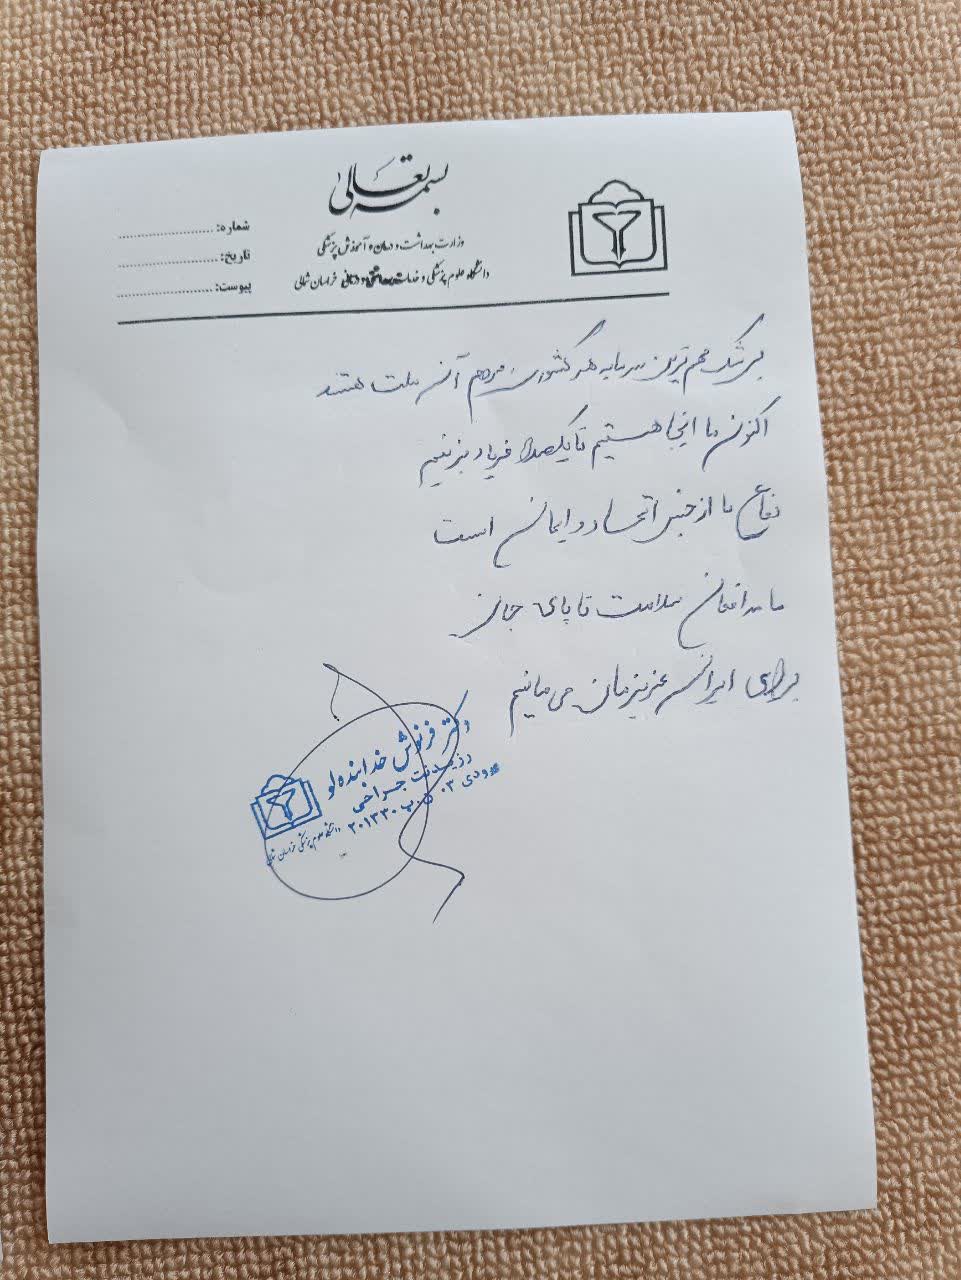 بسمه تعالی
وزارت بهداشت و درمان و آموزش پزشکی
دانشگاه علوم پزشکی و خدمات بهداشتی و درمانی خراسان شمالی
شماره: ........................
تاریخ: ........................
پیوست: ........................
بی شک مهم ترین سرمایه هر کشوری مردم آن ملت هستند
اکنون ما اینجا هستیم تا یکصدا فریاد بزنیم
دفاع ما از جنس اتحاد و ایمان است
ما مدافعان سلامت تا پای جان
برای ایران عزیزمان می مانیم
دکتر فرنوش خدابنده لو
رزیدنت جراحی
ورودی ۰۳ ک.پ ۲۰۱۳۳۰
دانشگاه علوم پزشکی خراسان شمالی